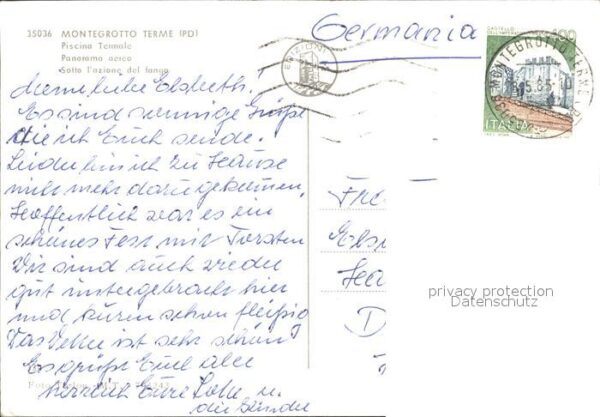 35036 MONTEGROTTO TERME (PD)
Piscina Termale
Panorama aereo
Sotto l'azione del fango
Germania
CASTELLO
DELL'IMPERATORE
400
ITALIA
MONTEGROTTO TERME
EDIZIONI
Meine liebe Elsbeth!
Es sind sonnige Grüße
die ich Euch sende.
Leider bin ich zu Hause
nicht mehr dazu gekommen,
Hoffentlich war es ein
schönes Fest mit Torsten
Wir sind auch wieder
gut untergebracht hier
und kuren schon fleißig
Das Wetter ist sehr schön!
Es grüßt Euch alle
herzlich Eure Lotte u.
die
Fre
Els
Ha
D
privacy protection
Datenschutz
Foto